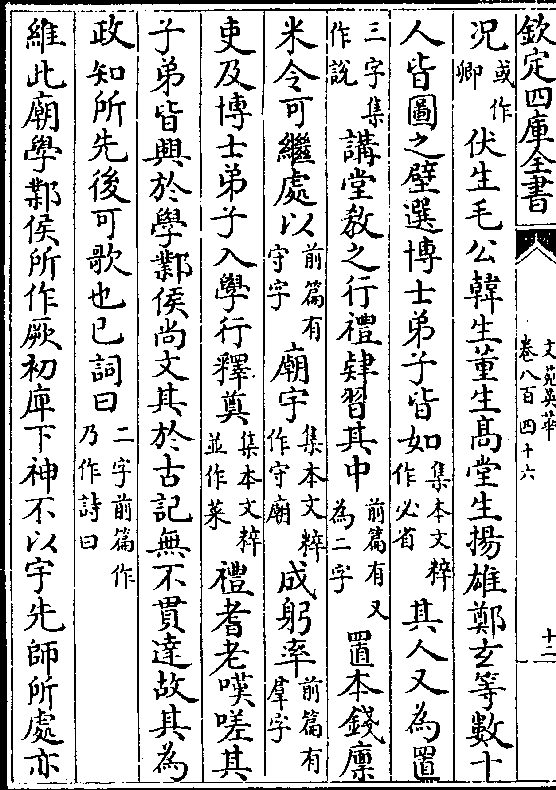 欽定四庫全書
文苑英華
卷八百四十六
十二
况或作卿伏生毛公韓生董生髙堂生揚雄鄭玄等數十
人皆圖之壁選博士弟子皆如集本文粹作必省其人又為置
三字集作說講堂教之行禮肄習其中前篇有又為二字置本錢廪
米令可繼處以前篇有守字廟宇集本文粹作守廟成躬率前篇有羣字
吏及博士弟子入學行釋奠集本文粹並作菜禮耆老嘆嗟其
子弟皆興於學鄴侯尚文其於古記無不貫達故其為
政知所先後可歌也已詞曰二字前篇作乃作詩曰
維此廟學鄴侯所作厥初庳下神不以宇先師所處亦